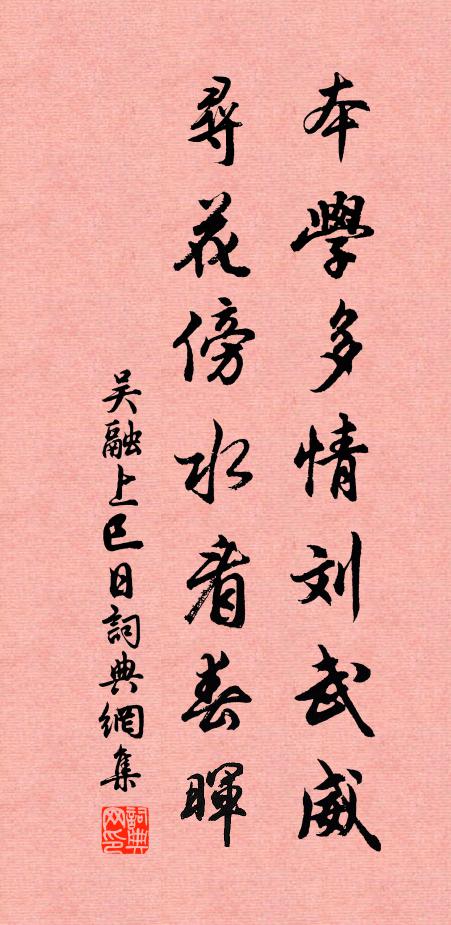 本學多情刘武威
尋花傍水看春暉
吴融上巳日詞典網集
詞典网印